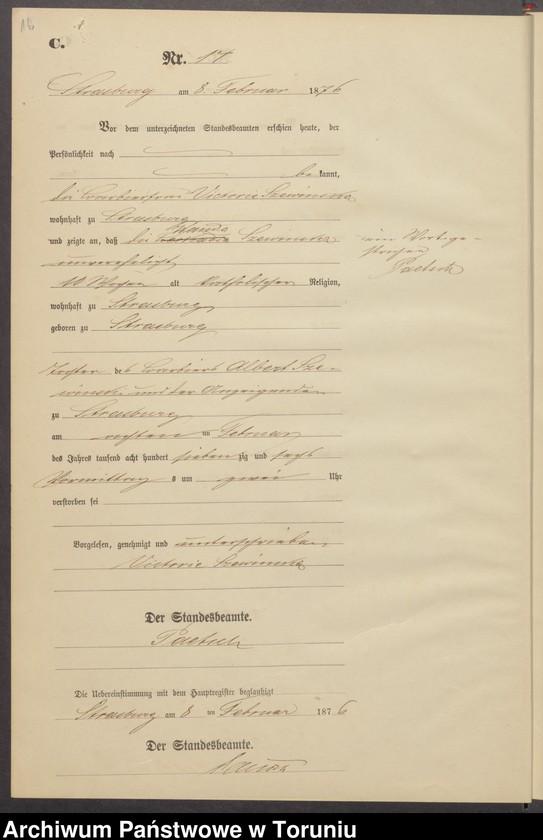 C.
Nr. 17
Strasburg am 8. Februar 1876
Vor dem unterzeichneten Standesbeamten erschien heute, der
Persönlichkeit nach
be kannt,
die Barbierfrau Victorie Szewinska
wohnhaft zu Strasburg
Wanda
und zeigte an, daß die Szewinska
unverehelicht
ein Wort ge-
strichen
Paetsch
10 Wochen alt katholischer Religion,
wohnhaft zu Strasburg
geboren zu Strasburg
Tochter des Barbiers Albert Sze-
winski und der Anzeigenden
zu Strasburg
am achten ten Februar
des Jahres tausend acht hundert sieben zig und sechs
Vormittag s um zwei Uhr
verstorben sei
Vorgelesen, genehmigt und unterschrieben
Victorie Szewinska
Der Standesbeamte.
Paetsch
Die Uebereinstimmung mit dem Hauptregister beglaubigt
Strasburg am 8 ten Februar 1876
Der Standesbeamte.
Archiwum Państwowe w Toruniu